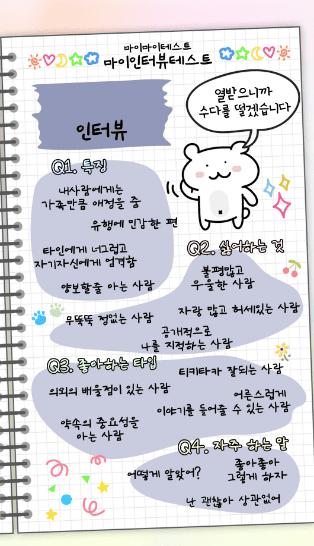 마이마이테스트
마이인터뷰테스트
열받으니까
수다를 떨겠습니다
인터뷰
Q1. 특징
내사람에게는
가족만큼 애정을 줌
유행에 민감한 편
타인에게 너그럽고
자기자신에게 엄격함
양보할줄 아는 사람
Q2. 싫어하는 것
불평많고
우울한 사람
무뚝뚝 정없는 사람
자랑 많고 허세있는 사람
공개적으로
나를 지적하는 사람
Q3. 좋아하는 타입
티키타카 잘되는 사람
의외의 배울점이 있는 사람
어른스럽게
이야기를 들어줄 수 있는 사람
약속의 중요성을
아는 사람
Q4. 자주 하는 말
어떻게 알았어?
좋아좋아
그렇게 하자
난 괜찮아 상관없어